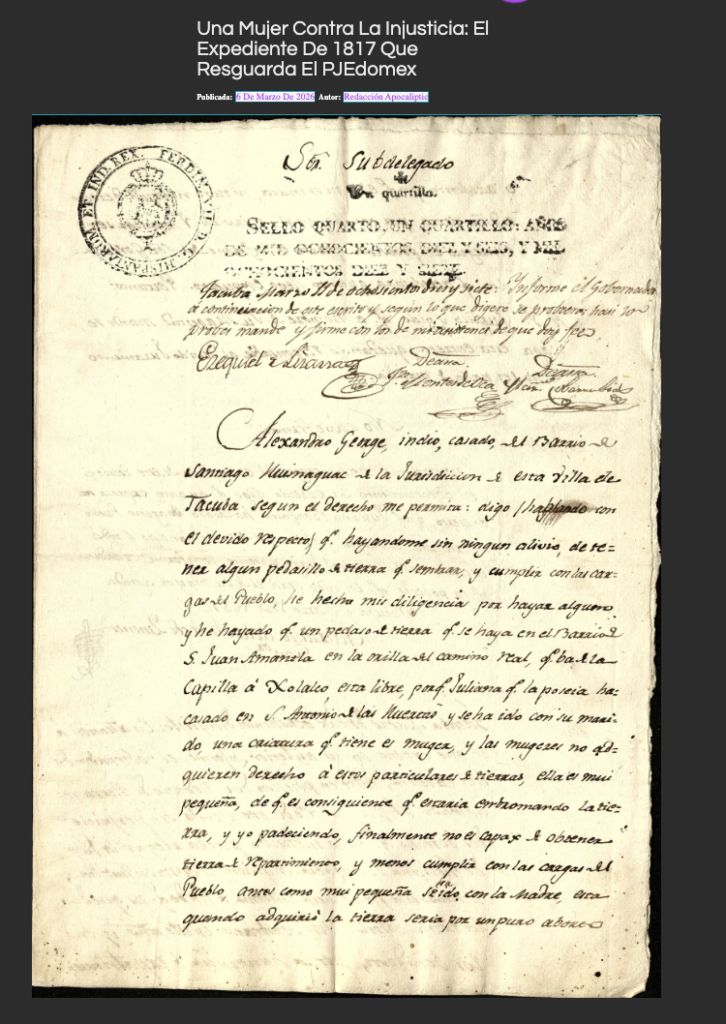 Una Mujer Contra La Injusticia: El
Expediente De 1817 Que
Resguarda El PJEdomex
Publicada: 6 De Marzo De 2026 Autor: Redacción Apocaliptic
FERDIN. VII. D. G. HISPANIARUM. ET. IND. REX.
Sor. Subdelegado
Un quartillo.
SELLO QUARTO, UN QUARTILLO: AÑOS
DE MIL OCHOCIENTOS DIEZ Y SEIS, Y MIL
OCHOCIENTOS DIEZ Y SIETE.
Tacuba Marzo 11 de ochosientos dies y siete: Informe el Gobernador
a continuacion de este escrito y segun lo que digere se probeera: haci lo
probei mande y firme con los de mi asistencia de que doy fee
Ezequiel de Lizarza
De assa. De assa.
Alexandro George, indio, casado, del Barrio de
Santiago de la Jurisdiccion de esta Villa de
Tacuba segun el derecho me permita: digo (hablando con
el devido respecto) q.e hayandome sin ningun alivio, de te-
ner algun pedasillo de tierra q.e sembrar, y cumplir con las car-
gas del Pueblo, he hecho mis diligencia por hayar alguno
y he hayado q.e un pedaso de tierra q.e se haya en el Barrio de
S. Juan Amantla en la orilla del camino real, q.e ba de la
Capilla á Xolalco, esta libre, porq.e Juliana q.e la poseia ha-
casado en S. Antonio de las Huertas y se ha ido con su mari-
do, una criatura q.e tiene es muger, y las mugeres no ad-
quieren derecho á estos particulares de tierras, ella es mui
pequeña, de q.e es consiguiente q.e estaria embromando la tie-
rra, y yo padeciendo, finalmente no es capax de obtener
tierra de repartimiento, y menos cumplir con las cargas del
Pueblo, antes como mui pequeña se ido con la Madre, esta
quando adquirió la tierra seria por un puro aborto